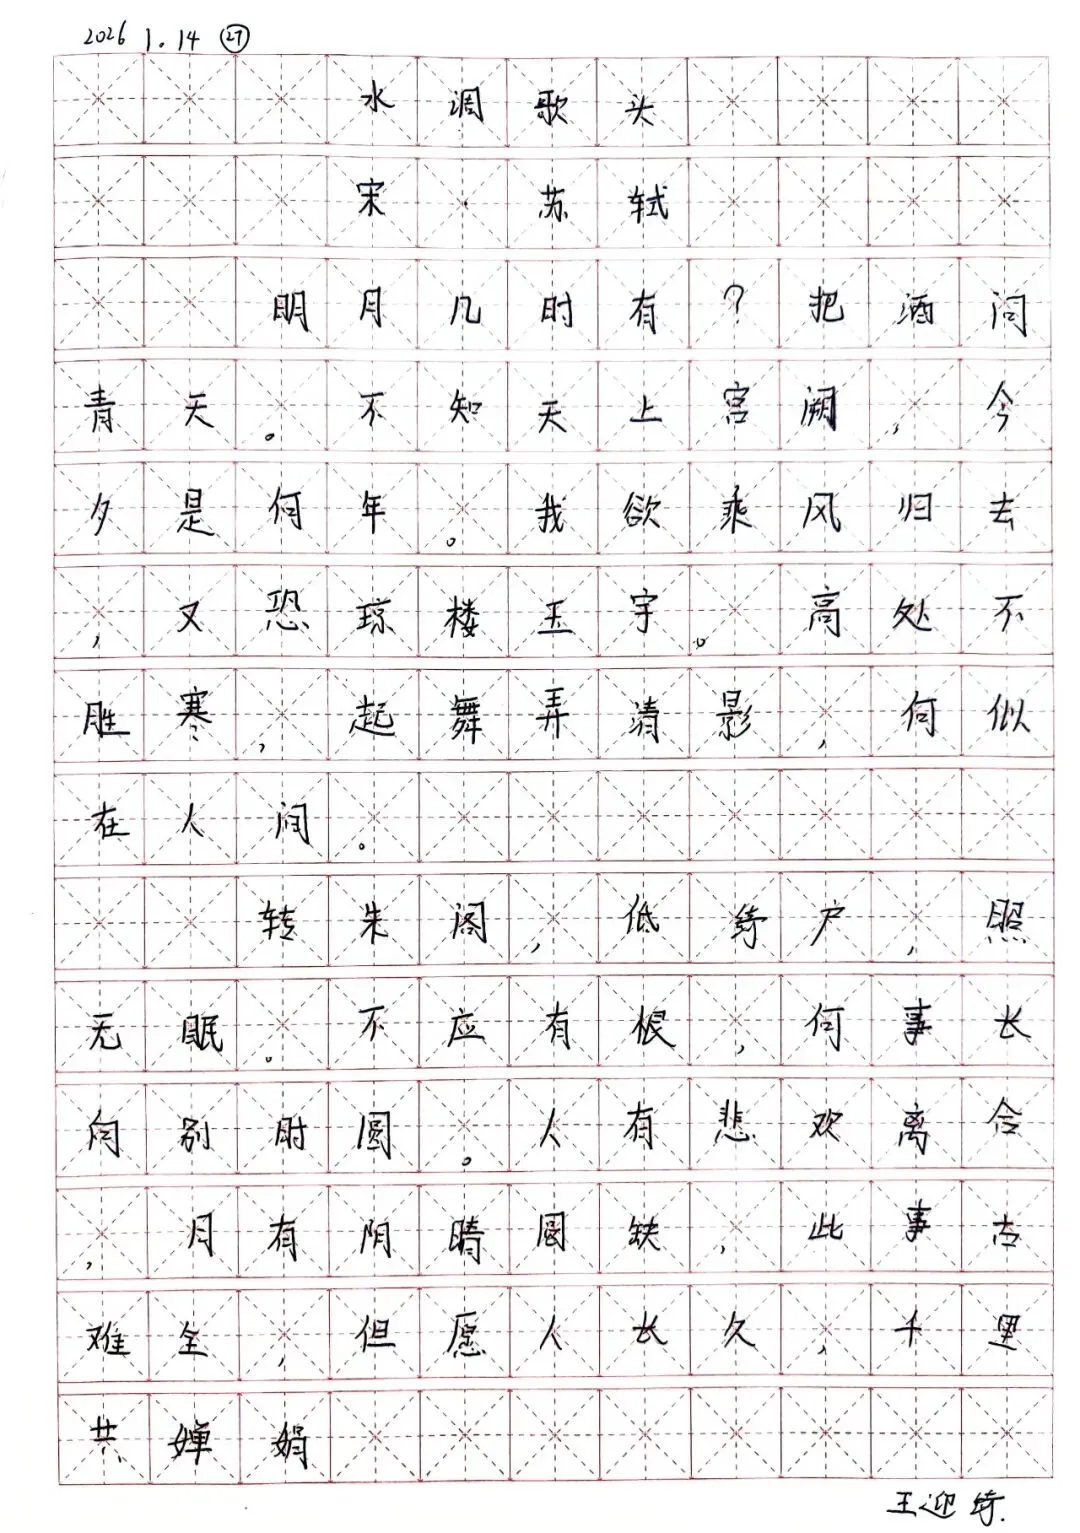 2026 1.14 ㉗
水调歌头
宋·苏轼
明月几时有？把酒问
青天。不知天上宫阙，今
夕是何年。我欲乘风归去
，又恐琼楼玉宇。高处不
胜寒，起舞弄清影，何似
在人间。
转朱阁，低绮户，照
无眠。不应有恨，何事长
向别时圆。人有悲欢离合
，月有阴晴圆缺，此事古
难全，但愿人长久，千里
共婵娟
王迎绮.